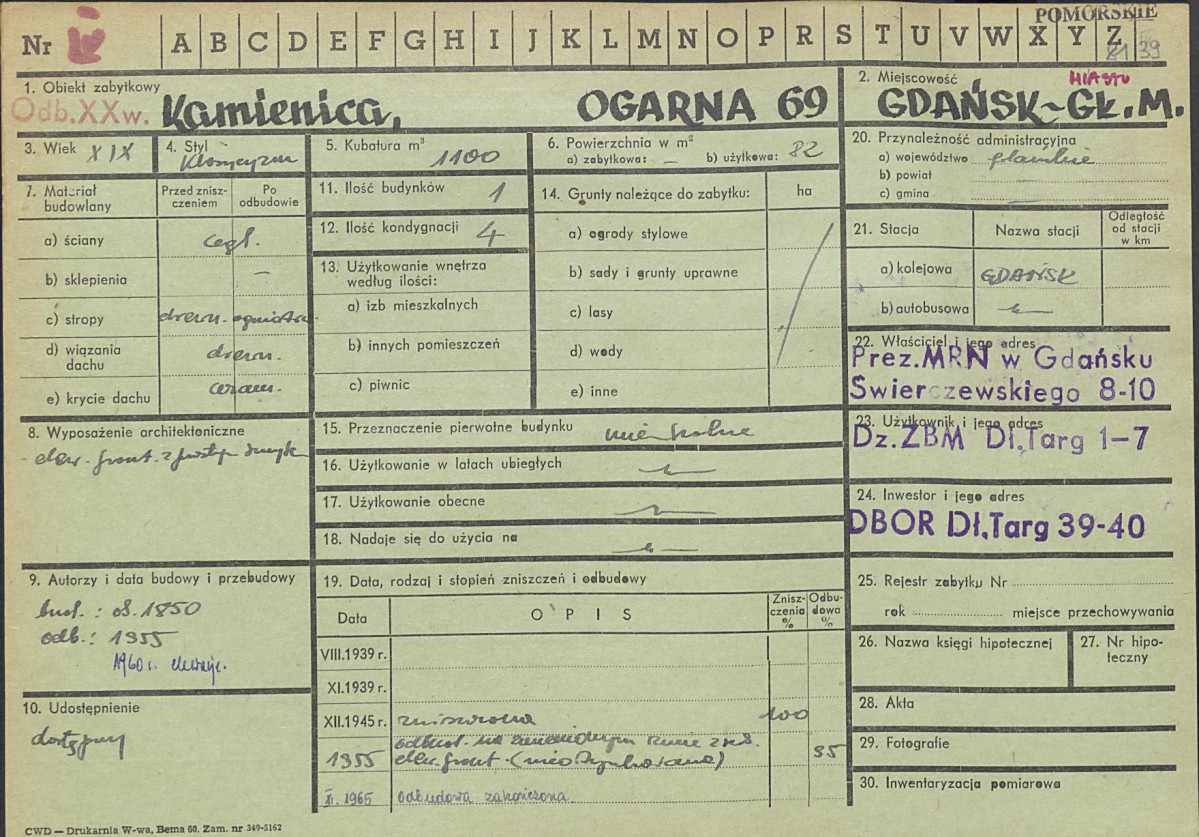 POMORSKIE
Nr A B C D E F G H I J K L M N O P R S T U V W X Y Z
39
1. Obiekt zabytkowy
Odb. XX w. Kamienica, OGARNA 69
2. Miejscowość MIASTO
GDAŃSK-GŁ.M.
3. Wiek XIX
4. Styl Klasycyzm
5. Kubatura m³ 1100
6. Powierzchnia w m²
a) zabytkowa: — b) użytkowa: 82
20. Przynależność administracyjna
a) województwo gdańskie
b) powiat
c) gmina
7. Materiał budowlany
Przed zniszczeniem
Po odbudowie
a) ściany cegł.
b) sklepienia —
c) stropy drewn. ogniotrw.
d) wiązania dachu drewn.
e) krycie dachu ceram.
11. Ilość budynków 1
12. Ilość kondygnacji 4
13. Użytkowanie wnętrza według ilości:
a) izb mieszkalnych
b) innych pomieszczeń
c) piwnic
14. Grunty należące do zabytku: ha
a) ogrody stylowe
b) sady i grunty uprawne
c) lasy
d) wody
e) inne
21. Stacja
Nazwa stacji
Odległość od stacji w km
a) kolejowa GDAŃSK
b) autobusowa
22. Właściciel i jego adres
Prez. MRN w Gdańsku
Świerczewskiego 8-10
8. Wyposażenie architektoniczne
elew. front.
15. Przeznaczenie pierwotne budynku mieszkalne
16. Użytkowanie w latach ubiegłych
17. Użytkowanie obecne
18. Nadaje się do użycia na
23. Użytkownik i jego adres
Dz.ZBM Dł.Targ 1-7
24. Inwestor i jego adres
DBOR Dł.Targ 39-40
9. Autorzy i data budowy i przebudowy
bud.: ok. 1850
odb.: 1955
1960 r. elewacje.
10. Udostępnienie
dostępny
19. Data, rodzaj i stopień zniszczeń i odbudowy
Data
OPIS
Zniszczenia %
Odbudowa %
VIII.1939 r.
XI.1939 r.
XII.1945 r. zniszczona 100
1955 odbud. na zmienionym rzucie
elew. front. (nieotynkowana) 95
XI. 1965 odbudowa zakończona
25. Rejestr zabytku Nr
rok miejsce przechowywania
26. Nazwa księgi hipotecznej
27. Nr hipoteczny
28. Akta
29. Fotografie
30. Inwentaryzacja pomiarowa
CWD — Drukarnia W-wa, Bema 60. Zam. nr 349-5162